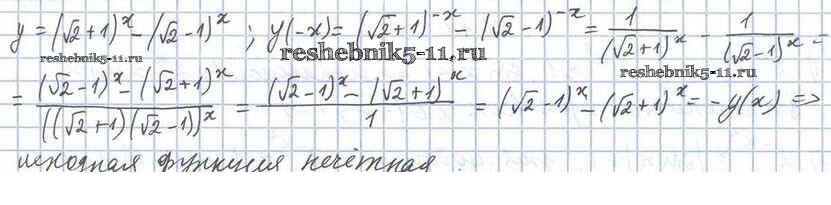 y = (√2+1)^x - (√2-1)^x ; y(-x) = (√2+1)^-x - (√2-1)^-x = 1/(√2+1)^x - 1/(√2-1)^x =
reshebnik5-11.ru
reshebnik5-11.ru
reshebnik5-11.ru
= ((√2-1)^x - (√2+1)^x)/((√2+1)(√2-1))^x = ((√2-1)^x - (√2+1)^x)/1 = (√2-1)^x - (√2+1)^x = -y(x) =>
исходная функция нечётная.